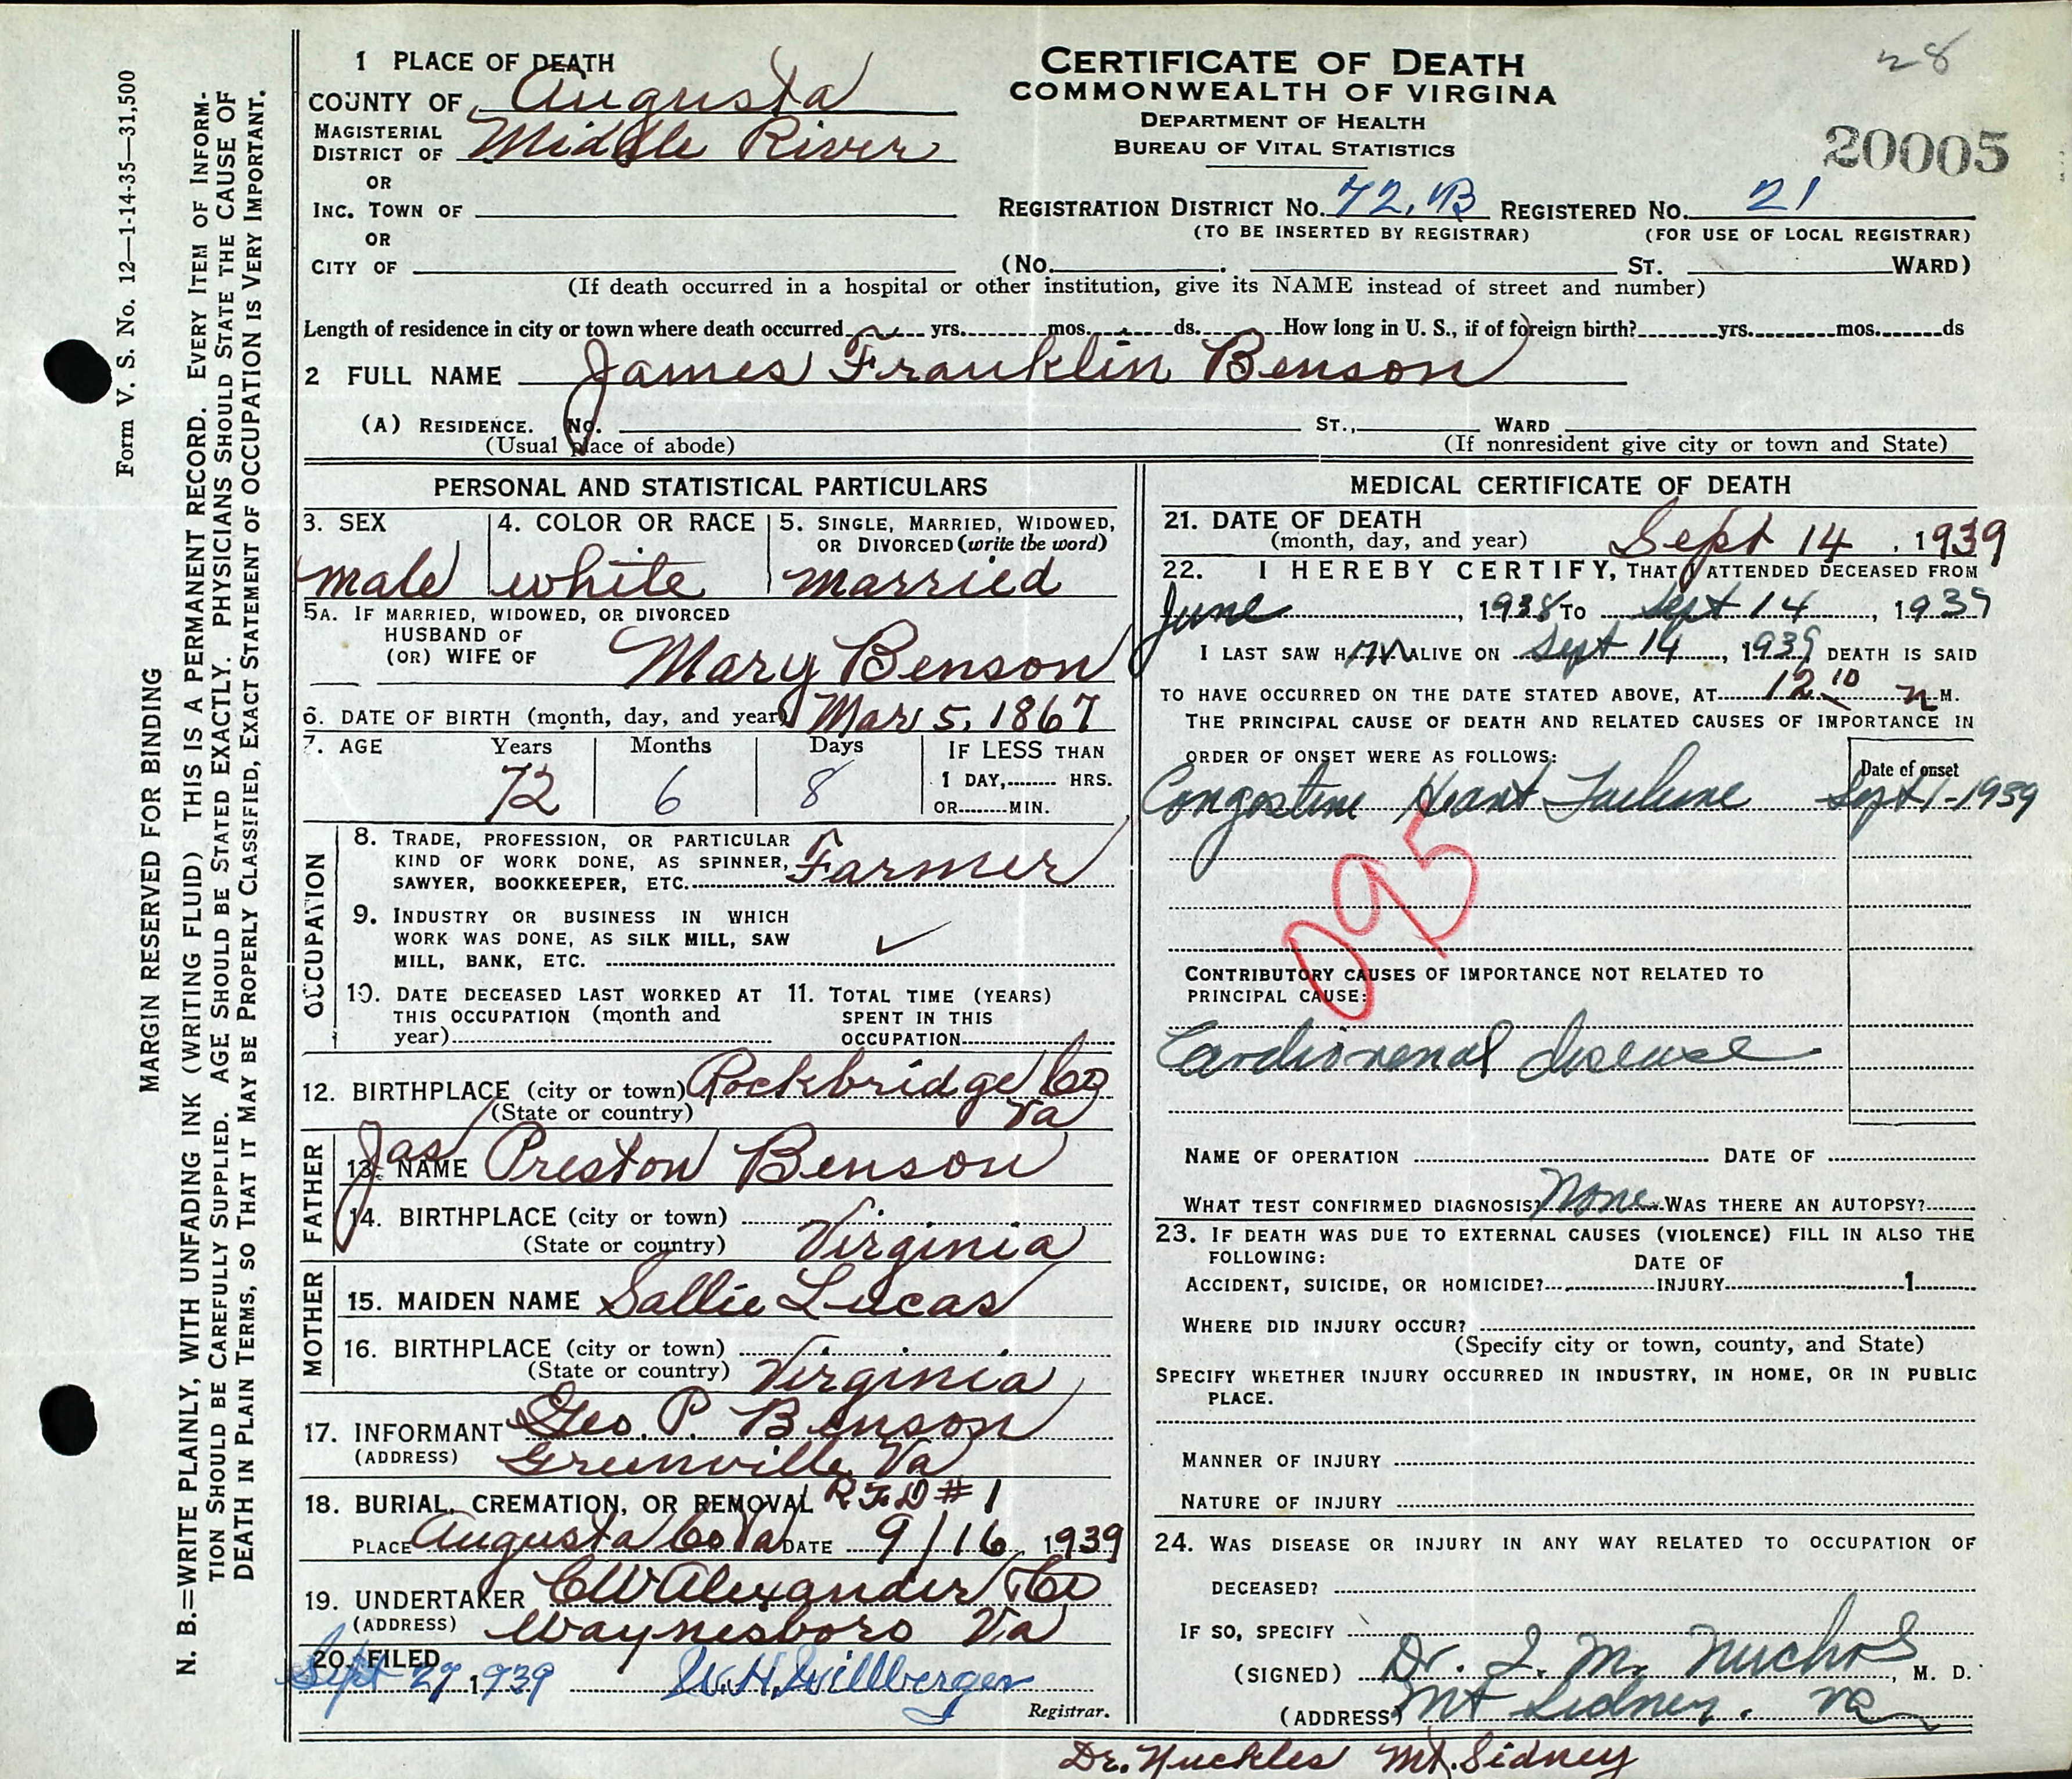 28
20005
Form V. S. No. 12—1-14-35—31,500
MARGIN RESERVED FOR BINDING
N. B.=WRITE PLAINLY, WITH UNFADING INK (WRITING FLUID) THIS IS A PERMANENT RECORD. EVERY ITEM OF INFORM-
TION SHOULD BE CAREFULLY SUPPLIED. AGE SHOULD BE STATED EXACTLY. PHYSICIANS SHOULD STATE THE CAUSE OF
DEATH IN PLAIN TERMS, SO THAT IT MAY BE PROPERLY CLASSIFIED, EXACT STATEMENT OF OCCUPATION IS VERY IMPORTANT.
1 PLACE OF DEATH
COUNTY OF Augusta
MAGISTERIAL
DISTRICT OF Middle River
OR
INC. TOWN OF
OR
CITY OF
CERTIFICATE OF DEATH
COMMONWEALTH OF VIRGINA
DEPARTMENT OF HEALTH
BUREAU OF VITAL STATISTICS
REGISTRATION DISTRICT NO. 72, B REGISTERED NO. 21
(TO BE INSERTED BY REGISTRAR) (FOR USE OF LOCAL REGISTRAR)
(NO. ST. WARD)
(If death occurred in a hospital or other institution, give its NAME instead of street and number)
Length of residence in city or town where death occurred yrs. mos. ds. How long in U. S., if of foreign birth? yrs. mos. ds
2 FULL NAME James Franklin Benson
(A) RESIDENCE. NO. ST., WARD
(Usual place of abode) (If nonresident give city or town and State)
PERSONAL AND STATISTICAL PARTICULARS
3. SEX 4. COLOR OR RACE 5. SINGLE, MARRIED, WIDOWED,
OR DIVORCED (write the word)
male white married
5A. IF MARRIED, WIDOWED, OR DIVORCED
HUSBAND OF
(OR) WIFE OF Mary Benson
6. DATE OF BIRTH (month, day, and year) Mar 5, 1867
7. AGE Years Months Days IF LESS THAN
72 6 8 1 DAY, HRS.
OR MIN.
OCCUPATION
8. TRADE, PROFESSION, OR PARTICULAR
KIND OF WORK DONE, AS SPINNER,
SAWYER, BOOKKEEPER, ETC. Farmer
9. INDUSTRY OR BUSINESS IN WHICH
WORK WAS DONE, AS SILK MILL, SAW
MILL, BANK, ETC. ✓
10. DATE DECEASED LAST WORKED AT 11. TOTAL TIME (YEARS)
THIS OCCUPATION (month and SPENT IN THIS
year) OCCUPATION
12. BIRTHPLACE (city or town) Rockbridge Co
(State or country) Va
FATHER
13. NAME Jas Preston Benson
14. BIRTHPLACE (city or town)
(State or country) Virginia
MOTHER
15. MAIDEN NAME Sallie Lucas
16. BIRTHPLACE (city or town)
(State or country) Virginia
17. INFORMANT Geo. P. Benson
(ADDRESS) Greenville Va
18. BURIAL, CREMATION, OR REMOVAL R F D # 1
PLACE Augusta Co Va DATE 9/16, 1939
19. UNDERTAKER CW Alexander Co
(ADDRESS) Waynesboro Va
20. FILED
Sept 27 1939 W.H. Willberger
Registrar.
MEDICAL CERTIFICATE OF DEATH
21. DATE OF DEATH
(month, day, and year) Sept 14, 1939
22. I HEREBY CERTIFY, THAT I ATTENDED DECEASED FROM
June, 1938 TO Sept 14, 1939
I LAST SAW HIM ALIVE ON Sept 14, 1939 DEATH IS SAID
TO HAVE OCCURRED ON THE DATE STATED ABOVE, AT 12 10 M.
THE PRINCIPAL CAUSE OF DEATH AND RELATED CAUSES OF IMPORTANCE IN
ORDER OF ONSET WERE AS FOLLOWS:
Date of onset
Congestive Heart Failure Sept 1-1939
095
CONTRIBUTORY CAUSES OF IMPORTANCE NOT RELATED TO
PRINCIPAL CAUSE:
Cardiorenal disease
NAME OF OPERATION DATE OF
WHAT TEST CONFIRMED DIAGNOSIS? None WAS THERE AN AUTOPSY?
23. IF DEATH WAS DUE TO EXTERNAL CAUSES (VIOLENCE) FILL IN ALSO THE
FOLLOWING:
DATE OF
ACCIDENT, SUICIDE, OR HOMICIDE? INJURY 1
WHERE DID INJURY OCCUR?
(Specify city or town, county, and State)
SPECIFY WHETHER INJURY OCCURRED IN INDUSTRY, IN HOME, OR IN PUBLIC
PLACE.
MANNER OF INJURY
NATURE OF INJURY
24. WAS DISEASE OR INJURY IN ANY WAY RELATED TO OCCUPATION OF
DECEASED?
IF SO, SPECIFY
(SIGNED) Dr. I. M. Nuchols, M. D.
(ADDRESS) Mt Sidney. Va
Dr. Nuckles Mt. Sidney